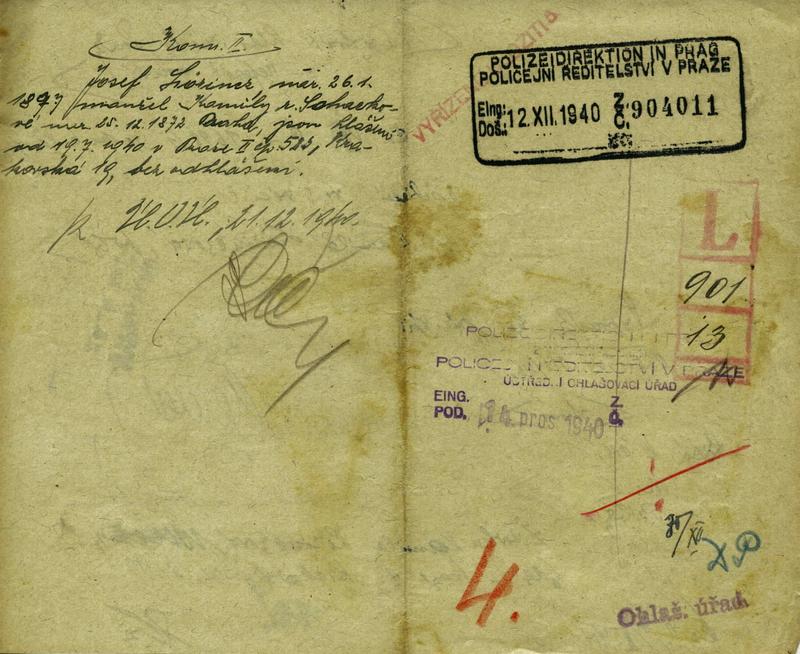 Kom. II.
Josef Löwiner, nar. 26.1.
1897 manžel Kamily r.
vé nar. 25.12.1872 Praha, jsou hlášeni
od 19.7.1940 v Praze II čp. 523, Kra-
kovská 19, bez odhlášení.
21.12.1940.
VYŘÍZE
POLIZEIDIREKTION IN PRAG
POLICEJNÍ ŘEDITELSTVÍ V PRAZE
Eing:
Doš.: 12.XII.1940 Z. Č. 904011
L
901
13
POLICEJNÍ ŘEDITELSTVÍ V PRAZE
ÚSTŘEDNÍ OHLAŠOVACÍ ÚŘAD
EING. Z.
POD. 14. pros 1940 Č.
4.
Ohlaš. úřad.